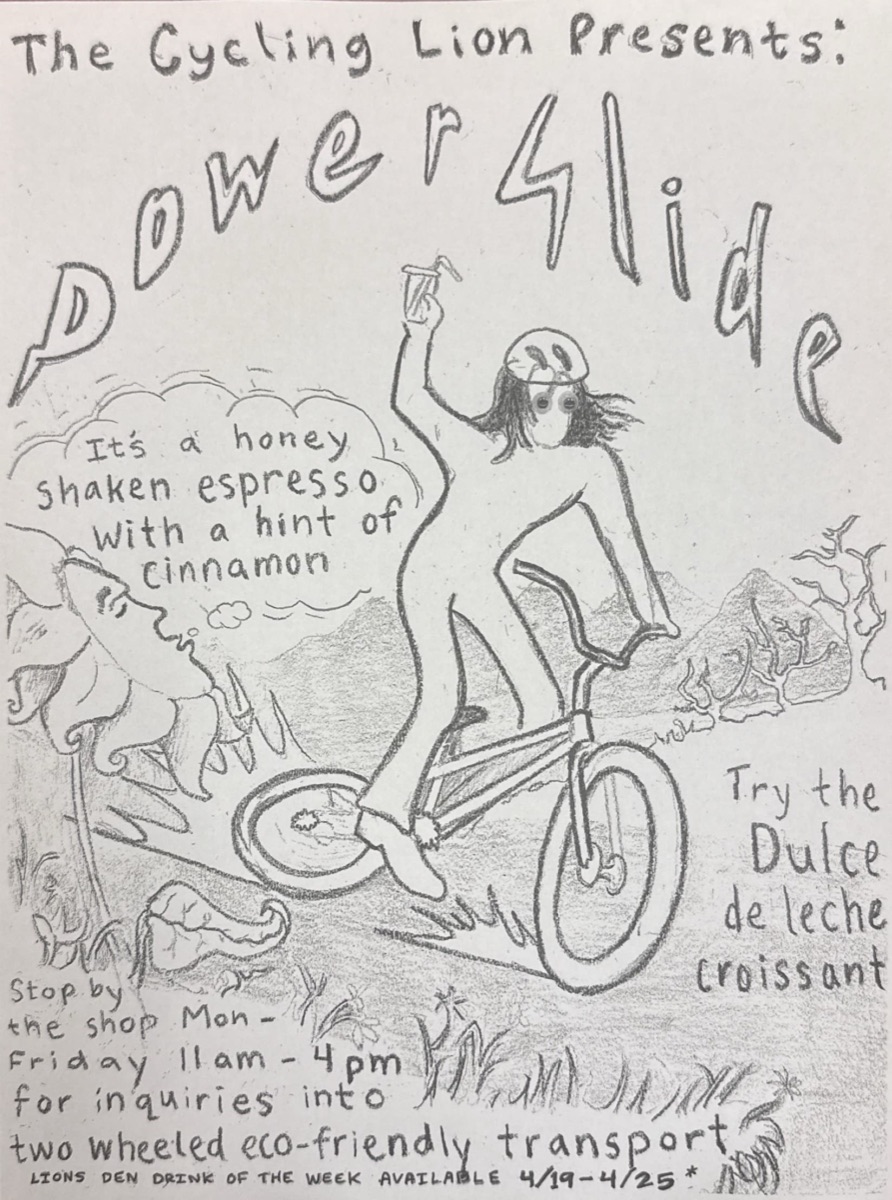 The Cycling Lion Presents:
Power Slide
It's a honey
shaken espresso
with a hint of
cinnamon
Try the
Dulce
de leche
croissant
Stop by
the shop Mon-
Friday 11am - 4pm
for inquiries into
two wheeled eco-friendly transport
LIONS DEN DRINK OF THE WEEK AVAILABLE 4/19-4/25*